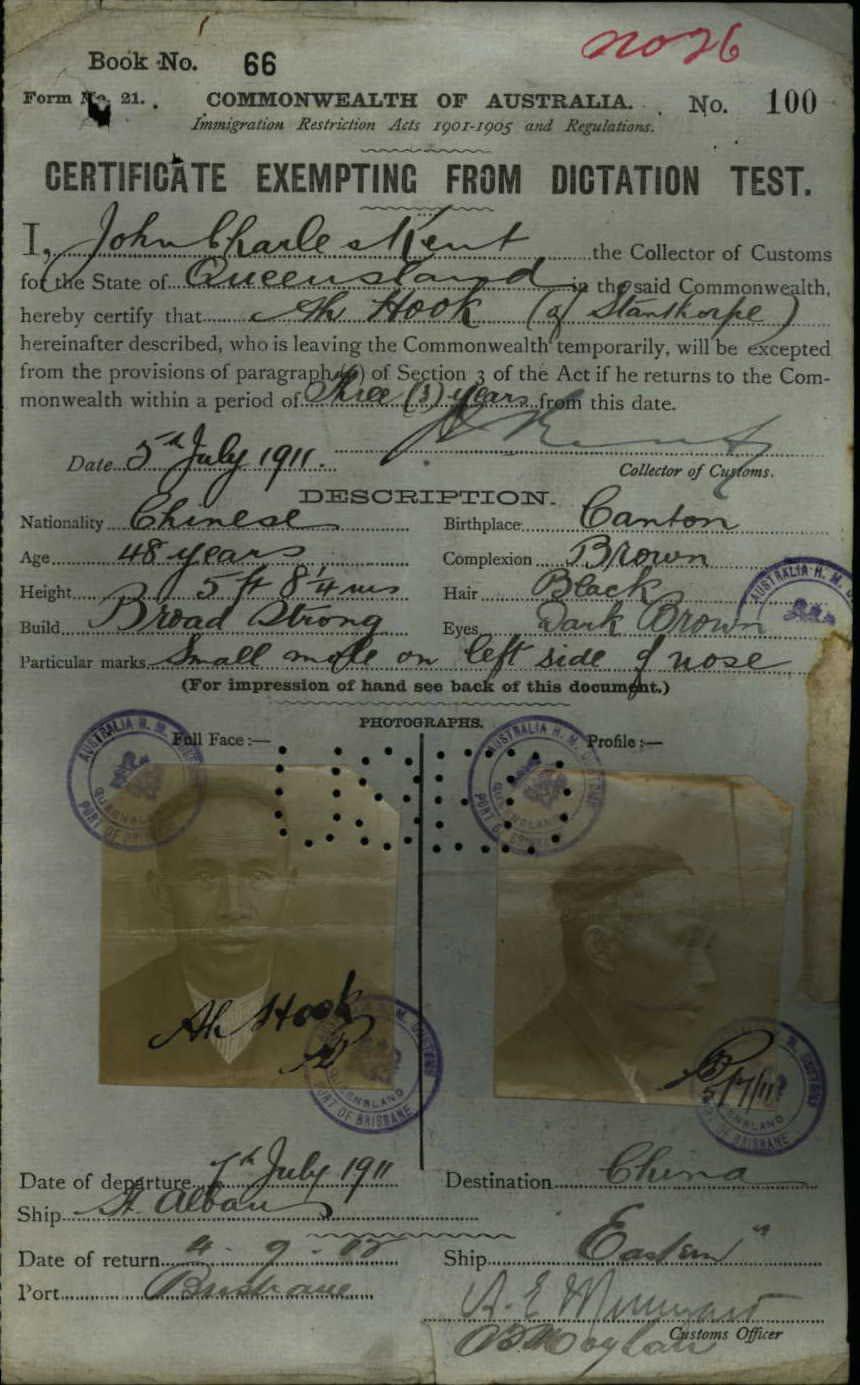 no 26
Book No. 66
Form No. 21. COMMONWEALTH OF AUSTRALIA. No. 100
Immigration Restriction Acts 1901-1905 and Regulations.
CERTIFICATE EXEMPTING FROM DICTATION TEST.
I, John Charles Kent the Collector of Customs
for the State of Queensland in the said Commonwealth,
hereby certify that Ah Hook (of Stanthorpe)
hereinafter described, who is leaving the Commonwealth temporarily, will be excepted
from the provisions of paragraph of Section 3 of the Act if he returns to the Com-
monwealth within a period of Three (3) years from this date.
Date 5th July 1911.
Collector of Customs.
DESCRIPTION.
Nationality Chinese Birthplace Canton
Age 48 years Complexion Brown
Height 5 ft 8 1/4 ins Hair Black
Build Broad Strong Eyes Dark Brown
Particular marks Small mole on left side of nose
(For impression of hand see back of this document.)
PHOTOGRAPHS.
Full Face :— Profile :—
AUSTRALIA H. M. CUSTOMS
QUEENSLAND
PORT OF BRISBANE
Ah Hook
5/7/11
Date of departure 7th July 1911 Destination China
Ship St Albans
Date of return 4.9.12 Ship Eastern
Port Brisbane
Customs Officer